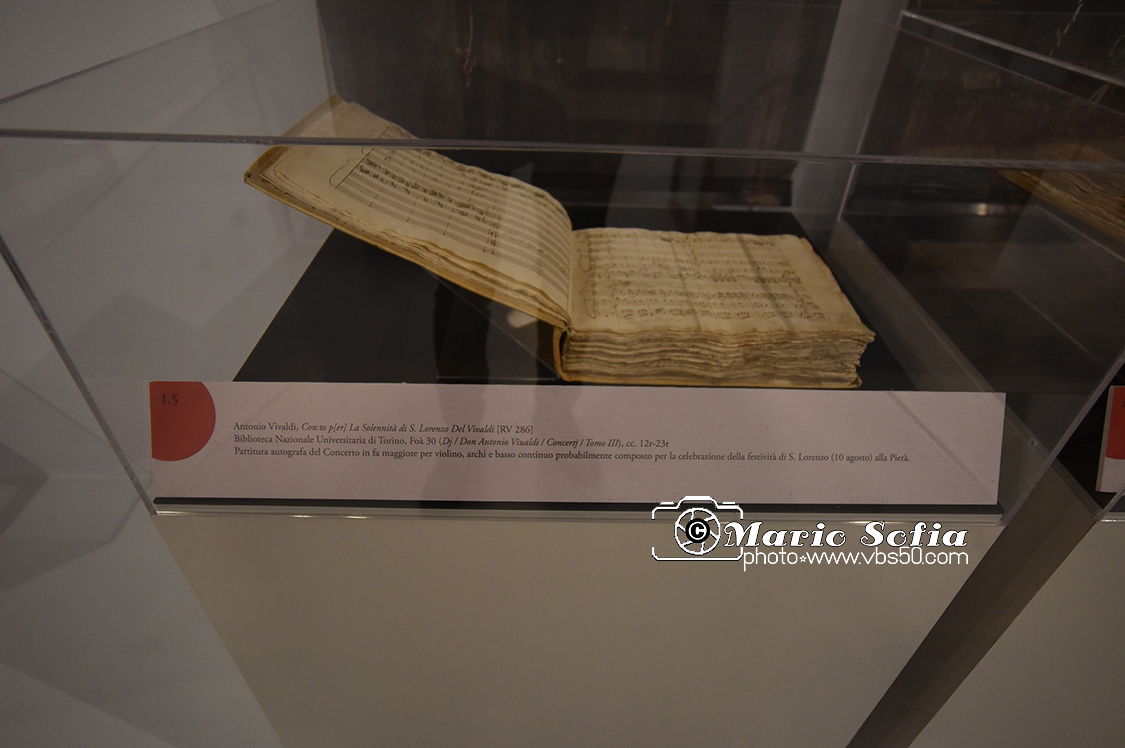 I.5
Antonio Vivaldi, Con:to p[er] La Solennità di S. Lorenzo Del Vivaldi [RV 286]
Biblioteca Nazionale Universitaria di Torino, Foà 30 (Dj / Don Antonio Viualdi / Concertj / Tomo III), cc. 12r-23r
Partitura autografa del Concerto in fa maggiore per violino, archi e basso continuo probabilmente composto per la celebrazione della festività di S. Lorenzo (10 agosto) alla Pietà.
© Mario Sofia
photo☆www.vbs50.com